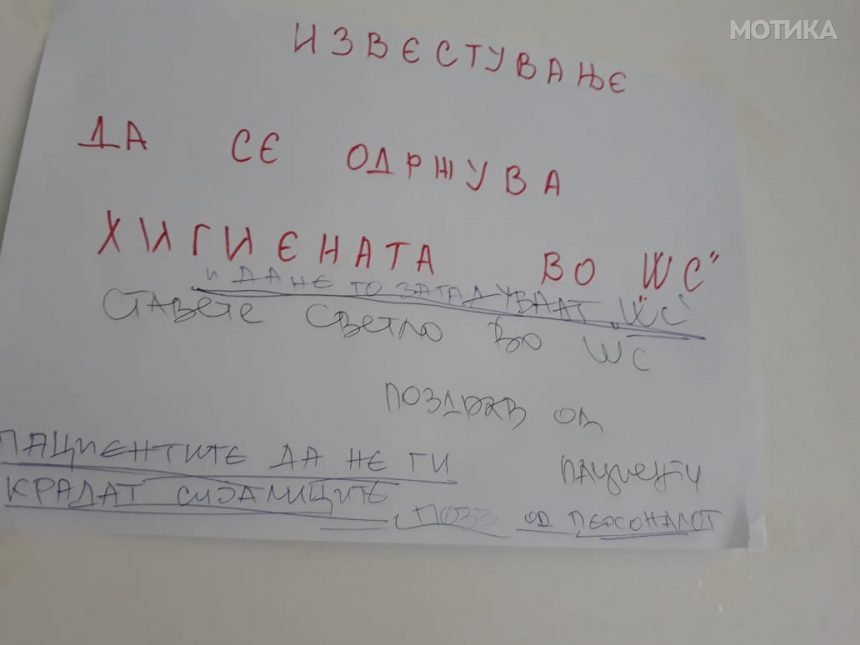 МОТИКА
ИЗВЕСТУВАЊЕ
ДА СЕ ОДРЖУВА
ХИГИЕНАТА ВО "WC"
и ДА НЕ ГО ЗАГАДУВААТ "WC"
СТАВЕТЕ СВЕТЛО ВО WC
ПОЗДРАВ ОД
ПАЦИЕНТИ
ПАЦИЕНТИТЕ ДА НЕ ГИ
КРАДАТ СИЈАЛИЦИТЕ
ПОЗЗ ОД ПЕРСОНАЛОТ